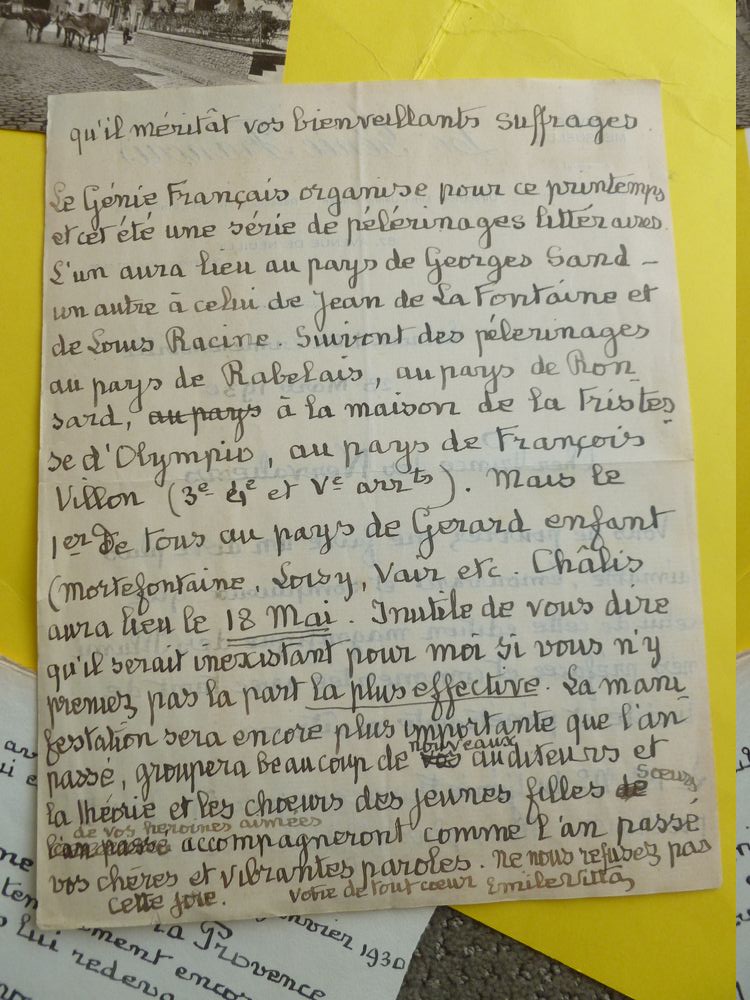 qu'il méritât vos bienveillants suffrages.
Le Génie Français organise pour ce printemps
et cet été une série de pélérinages littéraires.
L'un aura lieu au pays de Georges Sand -
un autre à celui de Jean de La Fontaine et
de Louis Racine. Suivront des pélerinages
au pays de Rabelais, au pays de Ron
sard, au pays à la maison de la Tristes
se d'Olympio, au pays de François
Villon (3e 4e et Ve arrts). Mais le
1er De tous au pays de Gerard enfant
(Mortefontaine, Loisy, Vair etc. Châlis
aura lieu le 18 Mai. Inutile de vous dire
qu'il serait inexistant pour moi si vous n'y
preniez pas la part la plus effective. La mani
festation sera encore plus importante que l'an
passé, groupera beaucoup de nouveaux auditeurs et
la théorie et les choeurs des jeunes filles Soeurs
de vos heroïnes aimées
l'an passé accompagneront comme l'an passé
vos chères et vibrantes paroles. Ne nous refusez pas
cette joie. Votre de tout coeur Emile Villa
janvier 1930
La Provence
encor
lui redeva